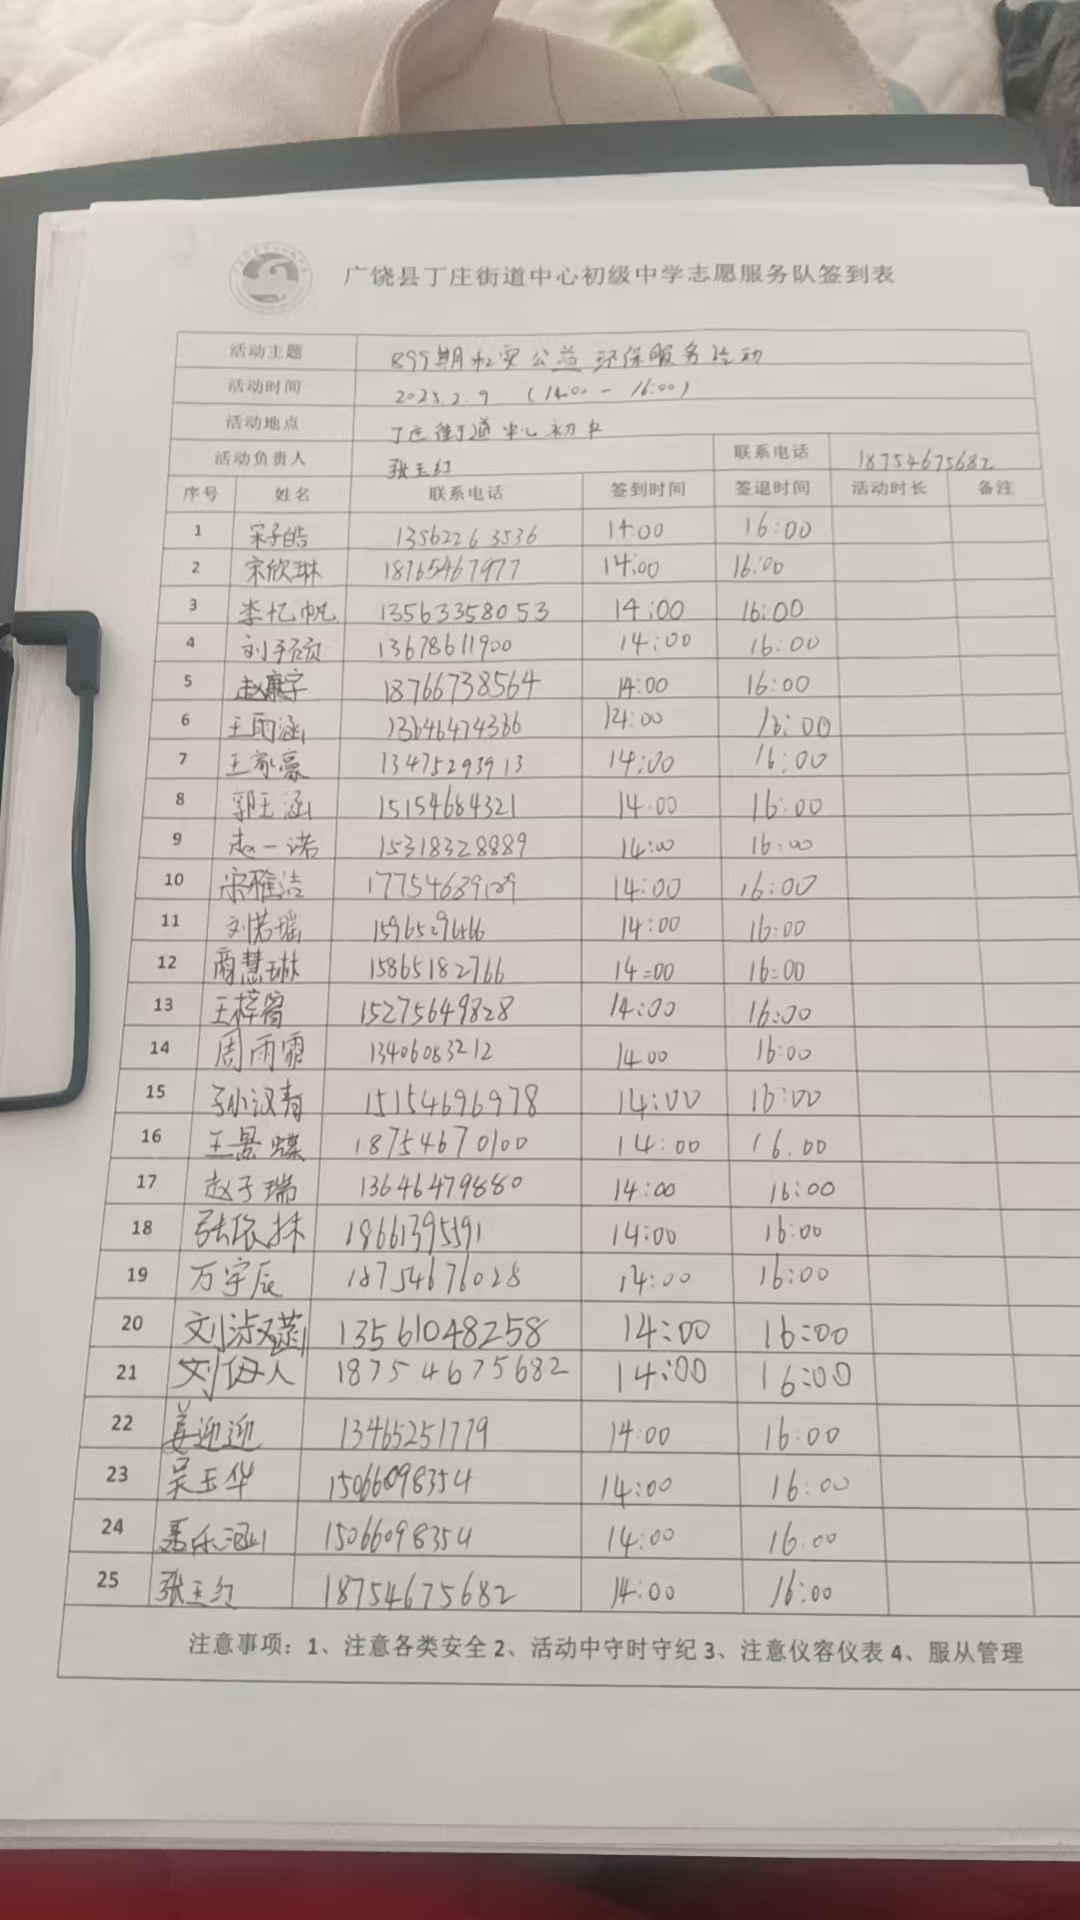 广饶县丁庄街道中心初级中学志愿服务队签到表
活动主题 899期 公益环保服务活动
活动时间 2025.2.9 (14:00 - 16:00)
活动地点 丁庄街道中心初中
活动负责人 张玉红 联系电话 18754675682
序号 姓名 联系电话 签到时间 签退时间 活动时长 备注
1 宋子皓 13562263536 14:00 16:00
2 宋欣琳 18765467977 14:00 16:00
3 李忆帆 13563358053 14:00 16:00
4 刘子硕 13678611900 14:00 16:00
5 赵康宇 18766738564 14:00 16:00
6 王雨涵 13646474366 14:00 16:00
7 王家豪 13475293913 14:00 16:00
8 郭玉涵 15154684321 14:00 16:00
9 赵一诺 15318328889 14:00 16:00
10 宋雅洁 17754689189 14:00 16:00
11 刘若瑶 14:00 16:00
12 商慧琳 15865182766 14=00 16=00
13 王梓 15275649828 14:00 16:00
14 周雨霏 13406083212 14:00 16:00
15 孙汉青 15154696978 14:00 16:00
16 王景蝶 18754670100 14:00 16.00
17 赵子瑞 13646479880 14:00 16:00
18 张依林 18661395591 14:00 16:00
19 万宇辰 18754676028 14:00 16:00
20 刘淑 13561048258 14:00 16:00
21 刘 18754675682 14:00 16:00
22 姜迎迎 13465251779 14:00 16:00
23 吴玉华 15066098354 14:00 16:00
24 15066098354 14:00 16.00
25 张玉红 18754675682 14:00 16:00
注意事项：1、注意各类安全 2、活动中守时守纪 3、注意仪容仪表 4、服从管理